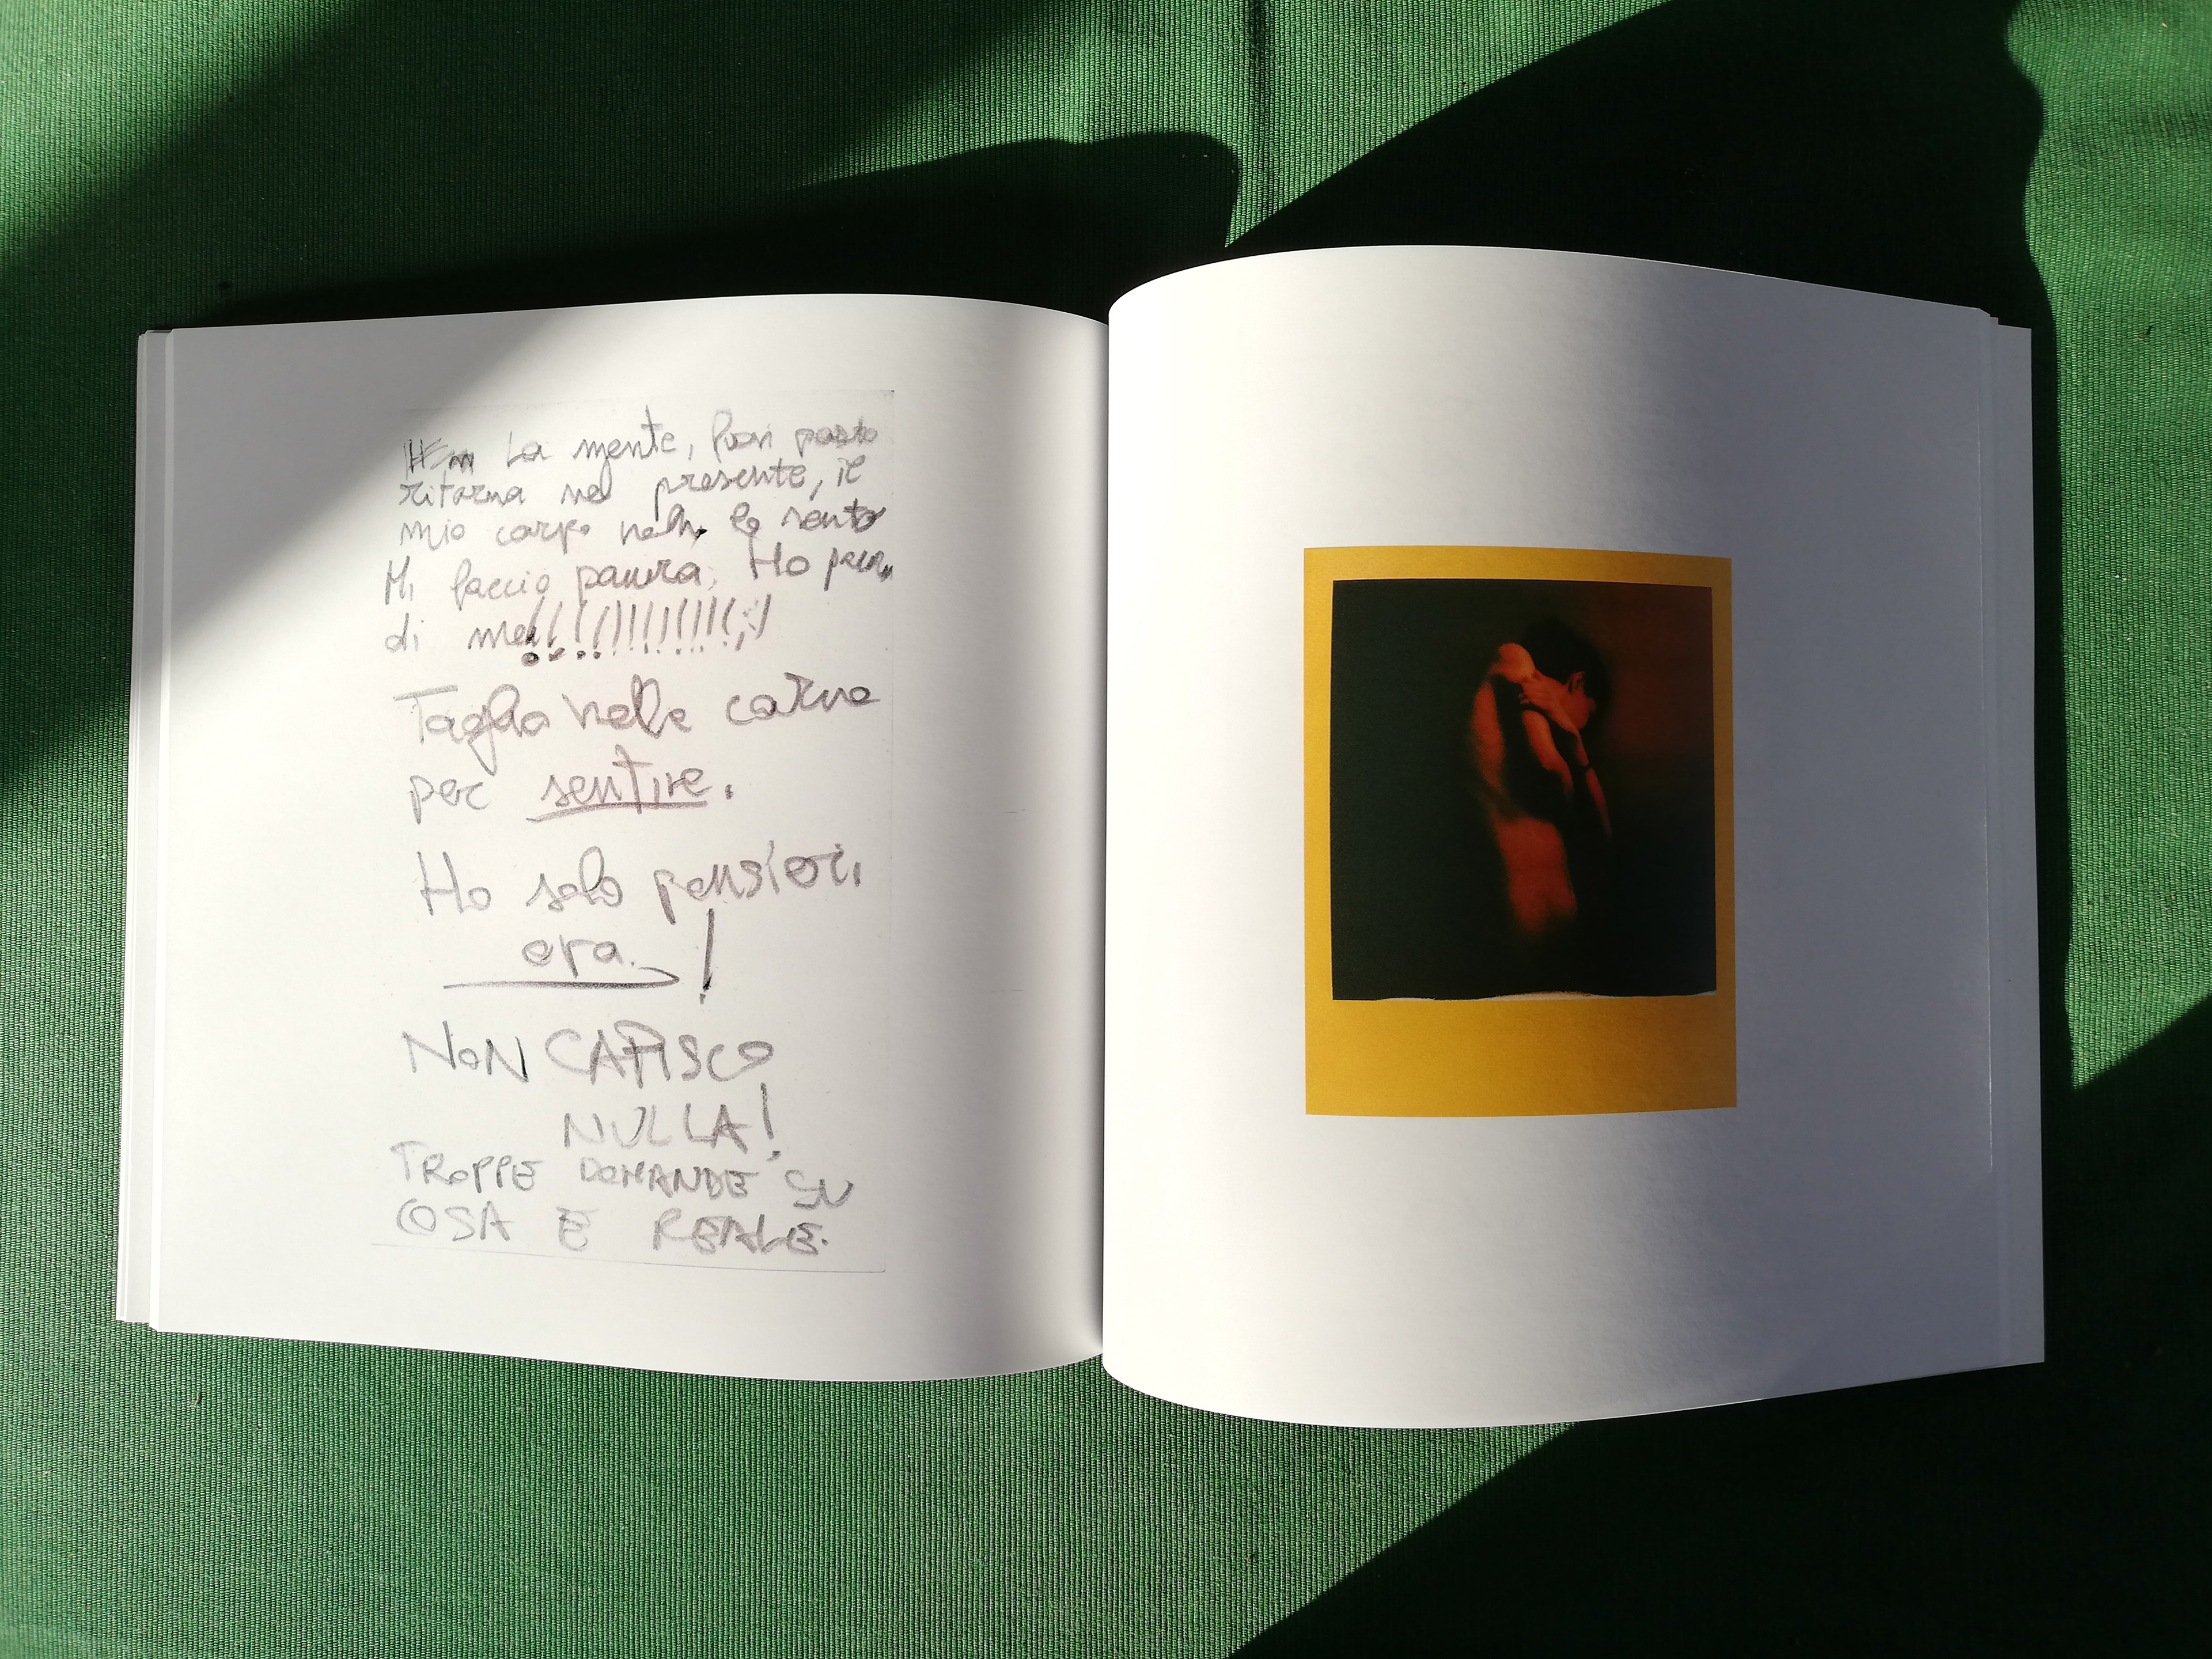 La mente, fuori posto
ritorna nel presente, il
mio corpo non lo sento
Mi faccio paura. Ho paura
di me!!!!!!!!!!!!!
Taglio nella carne
per sentire.
Ho solo pensieri,
ora!
NON CAPISCO
NULLA!
TROPPE DOMANDE SU
COSA E REALE.